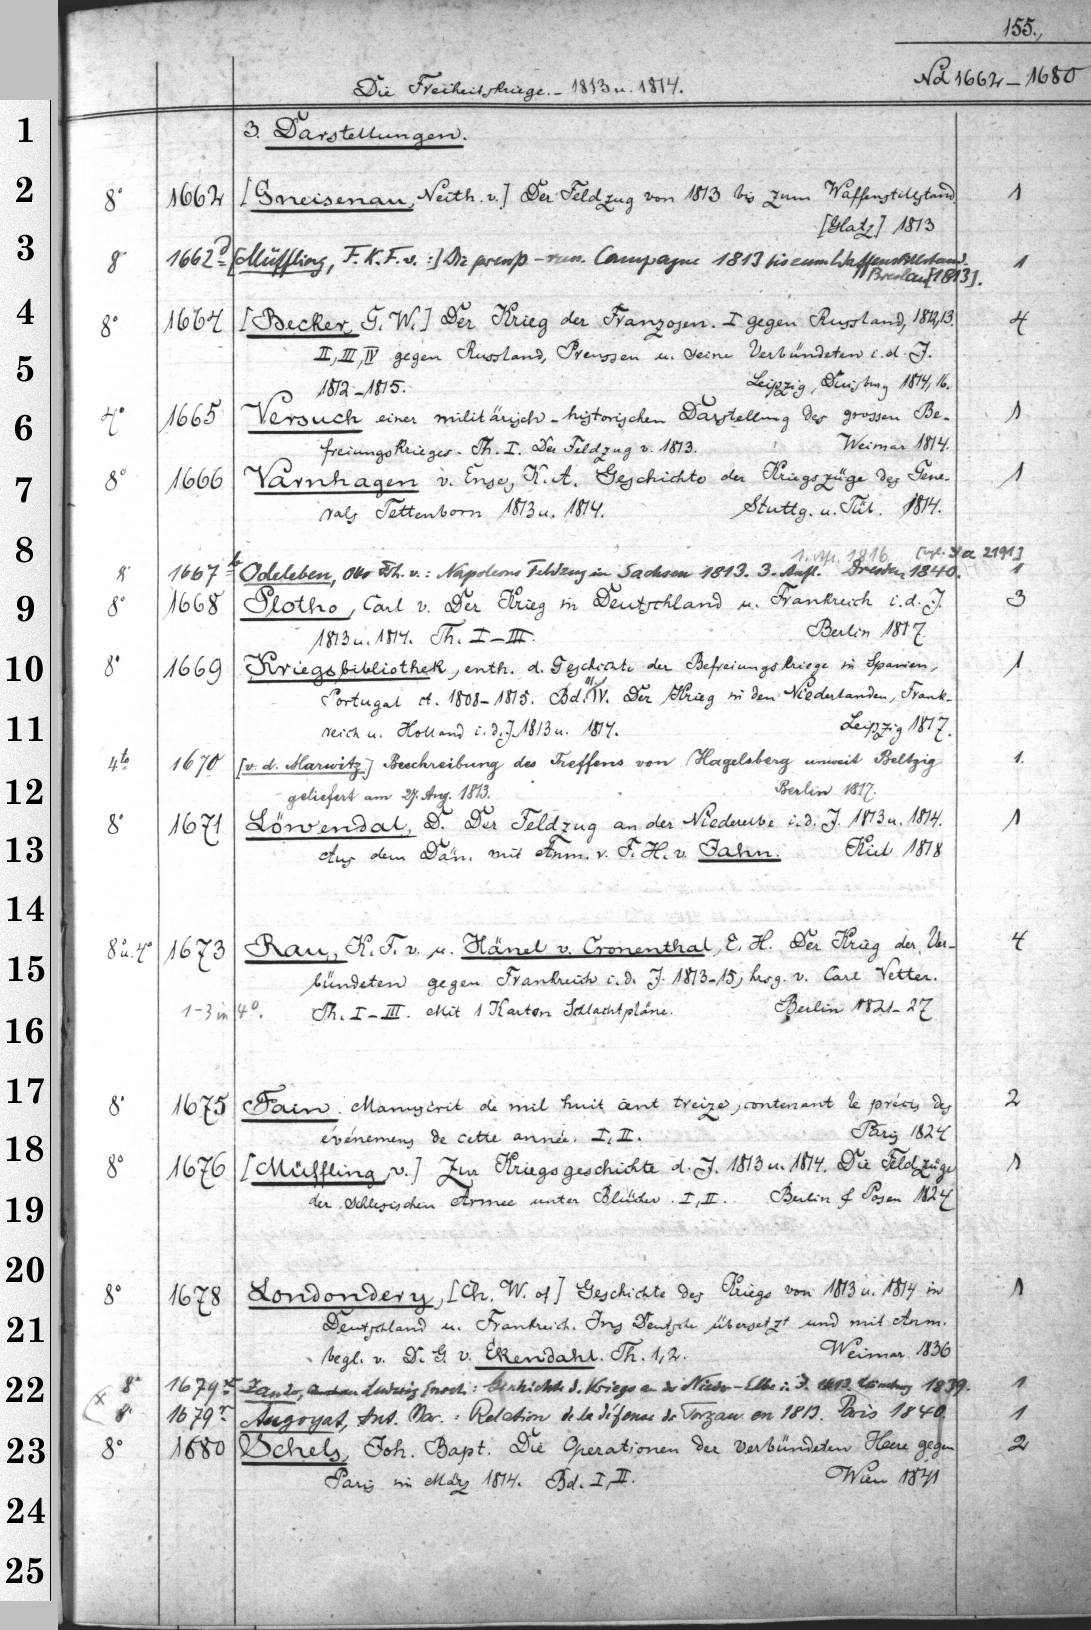 155.
Die Freiheitskriege. - 1813 u. 1814.
No 1662 - 1680
1 3. Darstellungen.
2 8° 1662 [Gneisenau, Neith. v.] Der Feldzug von 1813 bis zum Waffenstillstand 1
[Glatz] 1813
3 8° 1662d [Müffling, F. K. F. v. :] Die preuss-russ. Campagne 1813 bis zum Waffenstillstand. 1
Breslau [1813].
4 8° 1664 [Becker, G. W.] Der Krieg der Franzosen. I gegen Russland, 1812,13. 4
5 II, III, IV gegen Russland, Preussen u. seine Verbündeten i. d. J.
1812-1815. Leipzig, Duisburg 1814, 16.
6 4° 1665 Versuch einer militärisch-historischen Darstellung des grossen Be- 1
freiungskrieges. Th. I. Der Feldzug v. 1813. Weimar 1814.
7 8° 1666 Varnhagen v. Ense, K. A. Geschichte der Kriegszüge des Gene- 1
rals Tettenborn 1813 u. 1814. Stuttg. u. Tüb. 1814.
8 1. Afl. 1816 [vgl. 2191]
8° 1667b Odeleben, Otto v. : Napoleons Feldzug in Sachsen 1813. 3. Aufl. Dresden 1840. 1
9 8° 1668 Plotho, Carl v. Der Krieg in Deutschland u. Frankreich i. d. J. 3
1813 u. 1814. Th. I-III. Berlin 1817
10 8° 1669 Kriegsbibliothek, enth. d. Geschichte der Befreiungskriege in Spanien, 1
Portugal et. 1808-1815. Bd. IV. Der Krieg in den Niederlanden, Frank-
11 reich u. Holland i. d. J. 1813 u. 1814. Leipzig 1817.
4to 1670 [v. d. Marwitz] Beschreibung des Treffens von Hagelsberg unweit Beltzig 1.
12 geliefert am 27. Aug. 1813. Berlin 1817.
8° 1671 Löwendal, D. Der Feldzug an der Niederelbe i. d. J. 1813 u. 1814. 1
13 Aus dem Dän. mit Anm. v. F. H. v. Jahn. Kiel 1818
14
8° u. 4° 1673 Rau, K. F. v. u. Hänel v. Cronenthal, E. H. Der Krieg der Ver- 4
15 bündeten gegen Frankreich i. d. J. 1813-15, hrsg. v. Carl Vetter.
1-3 in 4°. Th. I-III. Mit 1 Karton Schlachtpläne. Berlin 1821-27
16
17 8° 1675 Fain. Manuscrit de mil huit cent treize, contenant le précis des 2
événemens de cette année. I, II. Paris 1824
18 8° 1676 [Müffling, v.] Zur Kriegsgeschichte d. J. 1813 u. 1814. Die Feldzüge 1
19 der Schlesischen Armee unter Blücher. I, II. Berlin & Posen 1824
20
8° 1678 Londondery, [Ch. W. of] Geschichte des Kriegs von 1813 u. 1814 in 1
21 Deutschland u. Frankreich. Ins Deutsche übersetzt und mit Anm.
begl. v. D. G. v. Ekendahl. Th. 1, 2. Weimar 1836
22 8° 1679 Zander, Ludwig Enoch : Geschichte d. Krieges an der Nieder-Elbe i. J. 1813. Lüneburg 1839. 1
8° 1679 Augoyat, Ant. Mar. : Relation de la défense de Torgau en 1813. Paris 1840. 1
23 8° 1680 Schels, Joh. Bapt. Die Operationen der verbündeten Heere gegen 2
Paris im März 1814. Bd. I, II. Wien 1841
24
25